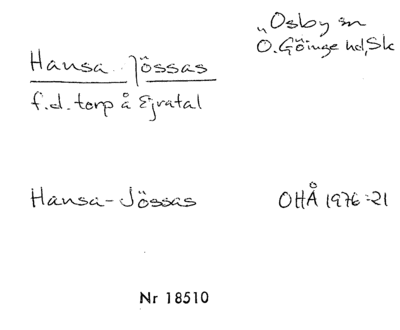 Osby sn
Ö. Göinge hd, Sk
Hansa Jössas
f.d. torp å Ejratal
Hansa-Jössas
OHÅ 1976:21
Nr 18510